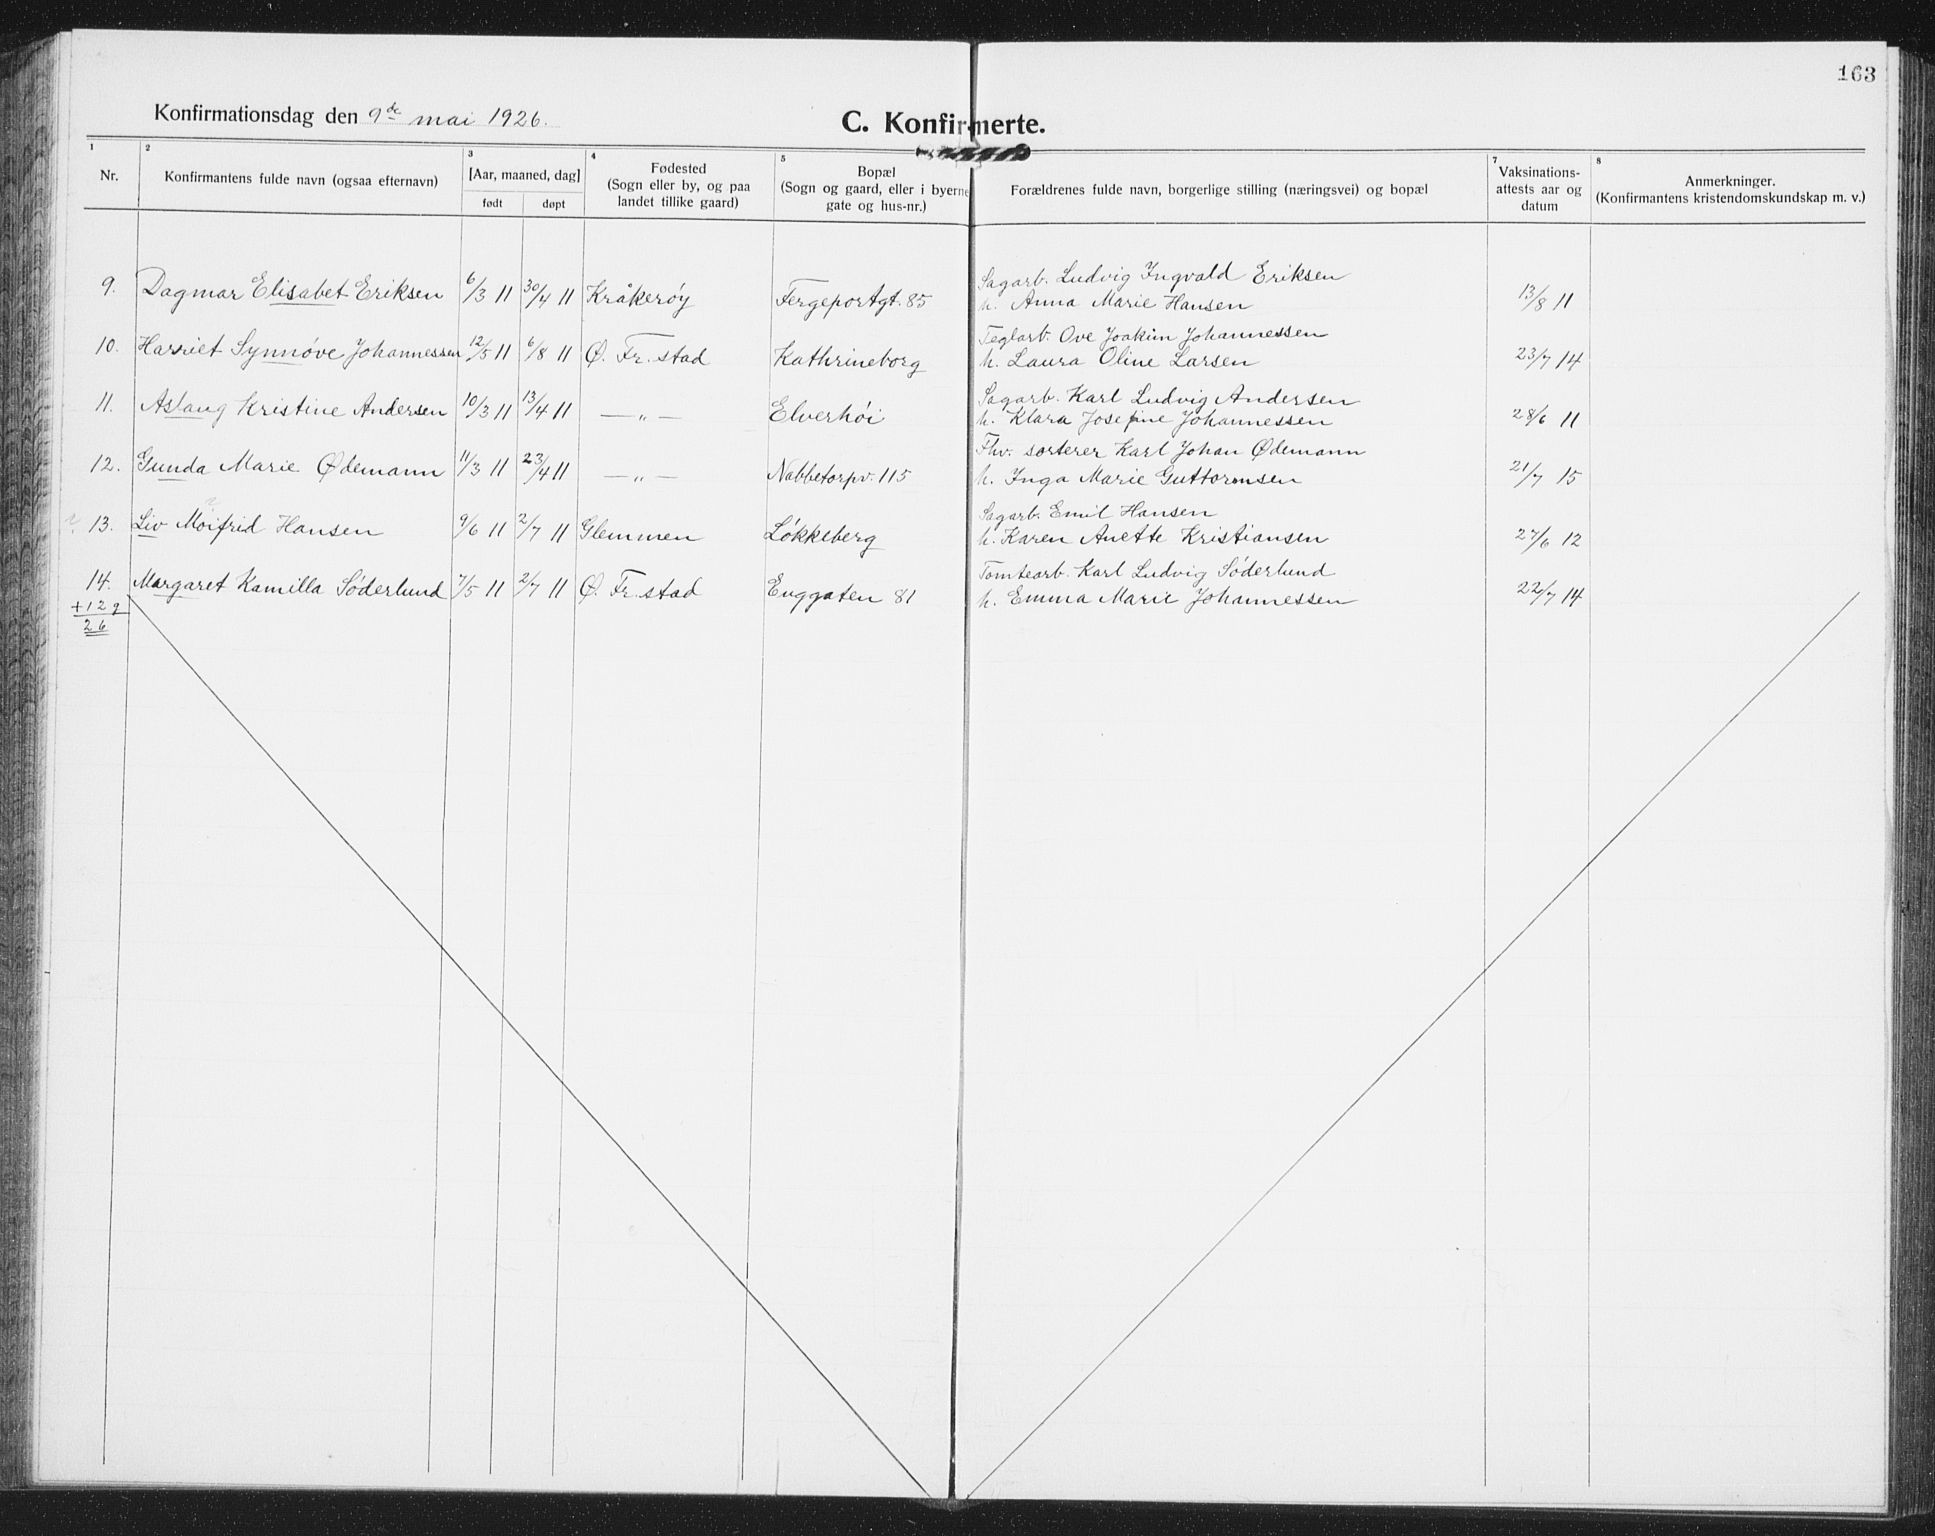 163
Konfirmationsdag den 9de mai 1926.
C. Konfirmerte.
1 2 3 4 5 7 8
Nr. Konfirmantens fulde navn (ogsaa efternavn) [Aar, maaned, dag] født døpt Fødested (Sogn eller by, og paa landet tillike gaard) Bopæl (Sogn og gaard, eller i byerne gate og hus-nr.) Forældrenes fulde navn, borgerlige stilling (næringsvei) og bopæl Vaksinations-attests aar og datum Anmerkninger. (Konfirmantens kristendomskundskap m. v.)
9. Dagmar Elisabet Eriksen 6/3 11 30/4 11 Kråkerøy Fergeportgt. 85 Sagarb. Ludvig Ingvald Eriksen
h. Anna Marie Hansen 13/8 11
10. Harriet Synnøve Johannessen 12/5 11 6/8 11 Ø. Fr.stad Kathrineborg Teglarb. Ove Joakim Johannessen
h. Laura Oline Larsen 23/7 14
11. Aslaug Kristine Andersen 10/3 11 13/4 11 —„— Elverhöi Sagarb. Karl Ludvig Andersen
h. Klara Josefine Johannessen 28/6 11
12. Gunda Marie Ødemann 11/3 11 23/4 11 —„— Nabbetorpv. 115 Fhv. sorterer Karl Johan Ødemann
h. Inga Marie Guttormsen 21/7 15
13. Liv Möifrid Hansen 9/6 11 2/7 11 Glemmen Løkkeberg Sagarb. Emil Hansen
h. Karen Anette Kristiansen 27/6 12
14. Margaret Kamilla Söderlund 7/5 11 2/7 11 Ø. Fr.stad Enggaten 81 Tomtearb. Karl Ludvig Söderlund
h. Emma Marie Johannessen 22/7 14
+12 g
26